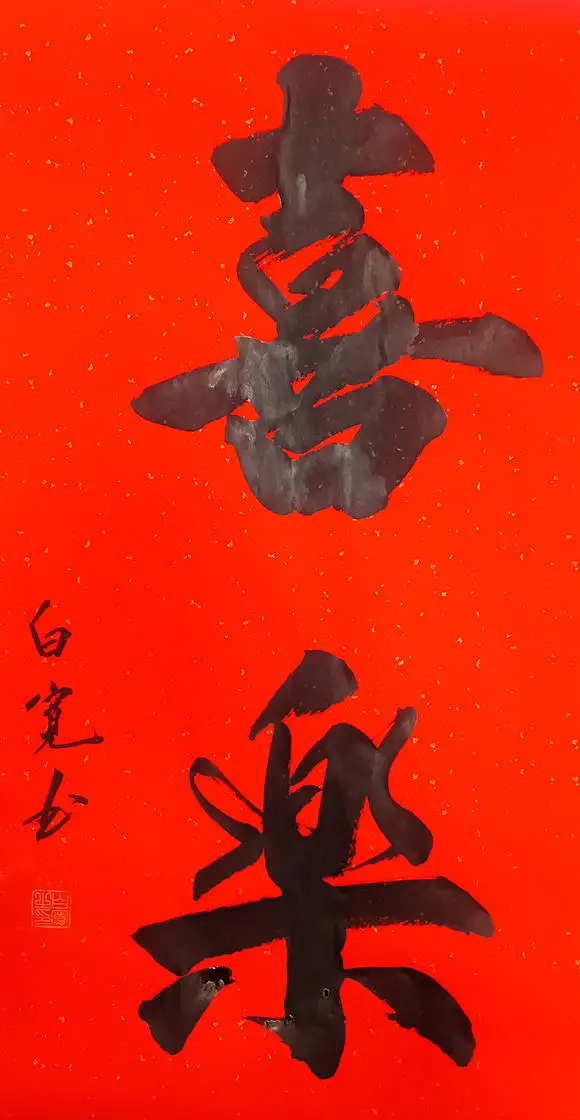 喜樂
白寬书